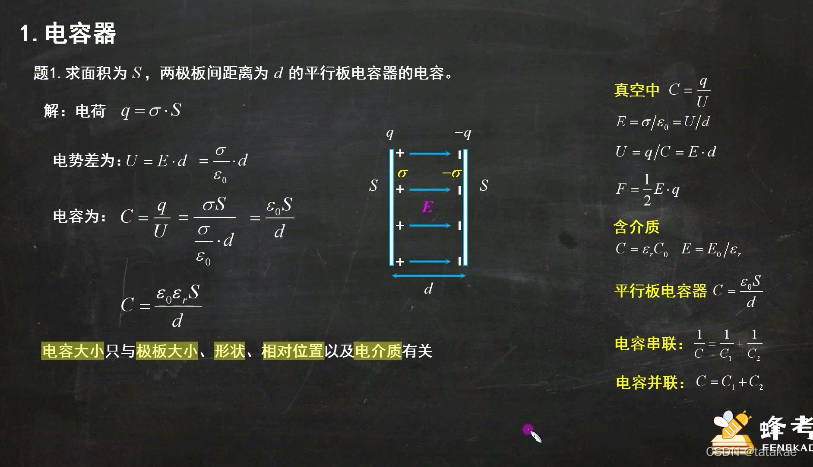 1.电容器
题1.求面积为 S，两极板间距离为 d 的平行板电容器的电容。
解：电荷 q=σ·S
电势差为：U=E·d =σ/ε₀·d
电容为：C=q/U=σS/(σ/ε₀·d)=ε₀S/d
C=ε₀εᵣS/d
电容大小只与极板大小、形状、相对位置以及电介质有关
q -q
+
S σ -σ S
+
E
+
+
d
真空中 C=q/U
E=σ/ε₀=U/d
U=q/C=E·d
F=1/2E·q
含介质
C=εᵣC₀ E=E₀/εᵣ
平行板电容器 C=ε₀S/d
电容串联：1/C=1/C₁+1/C₂
电容并联：C=C₁+C₂
蜂考
FENGKAO
CSDN @tatakae